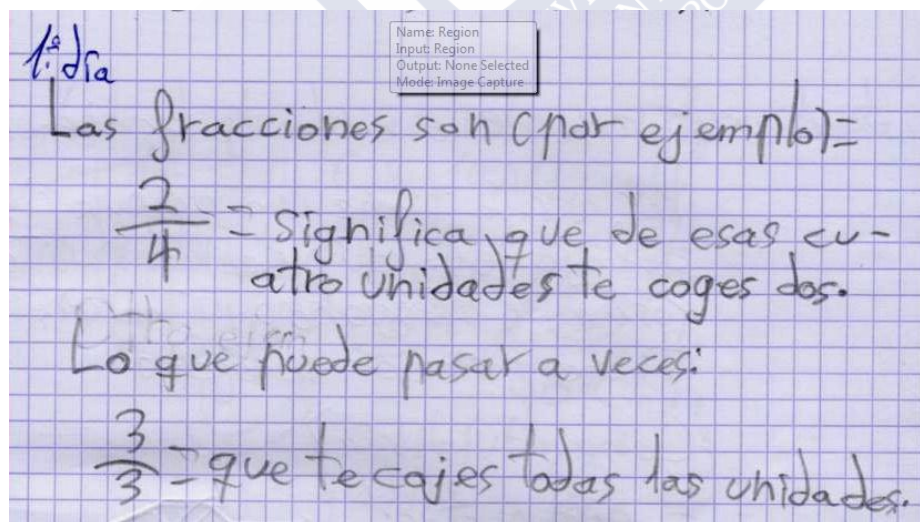 Name: Region
Input: Region
Output: None Selected
Mode: Image Capture
1º día
Las fracciones son (por ejemplo)=
2/4 = Significa que de esas cu-
atro unidades te coges dos.
Lo que puede pasar a veces:
3/3 = que te cojes todas las unidades.